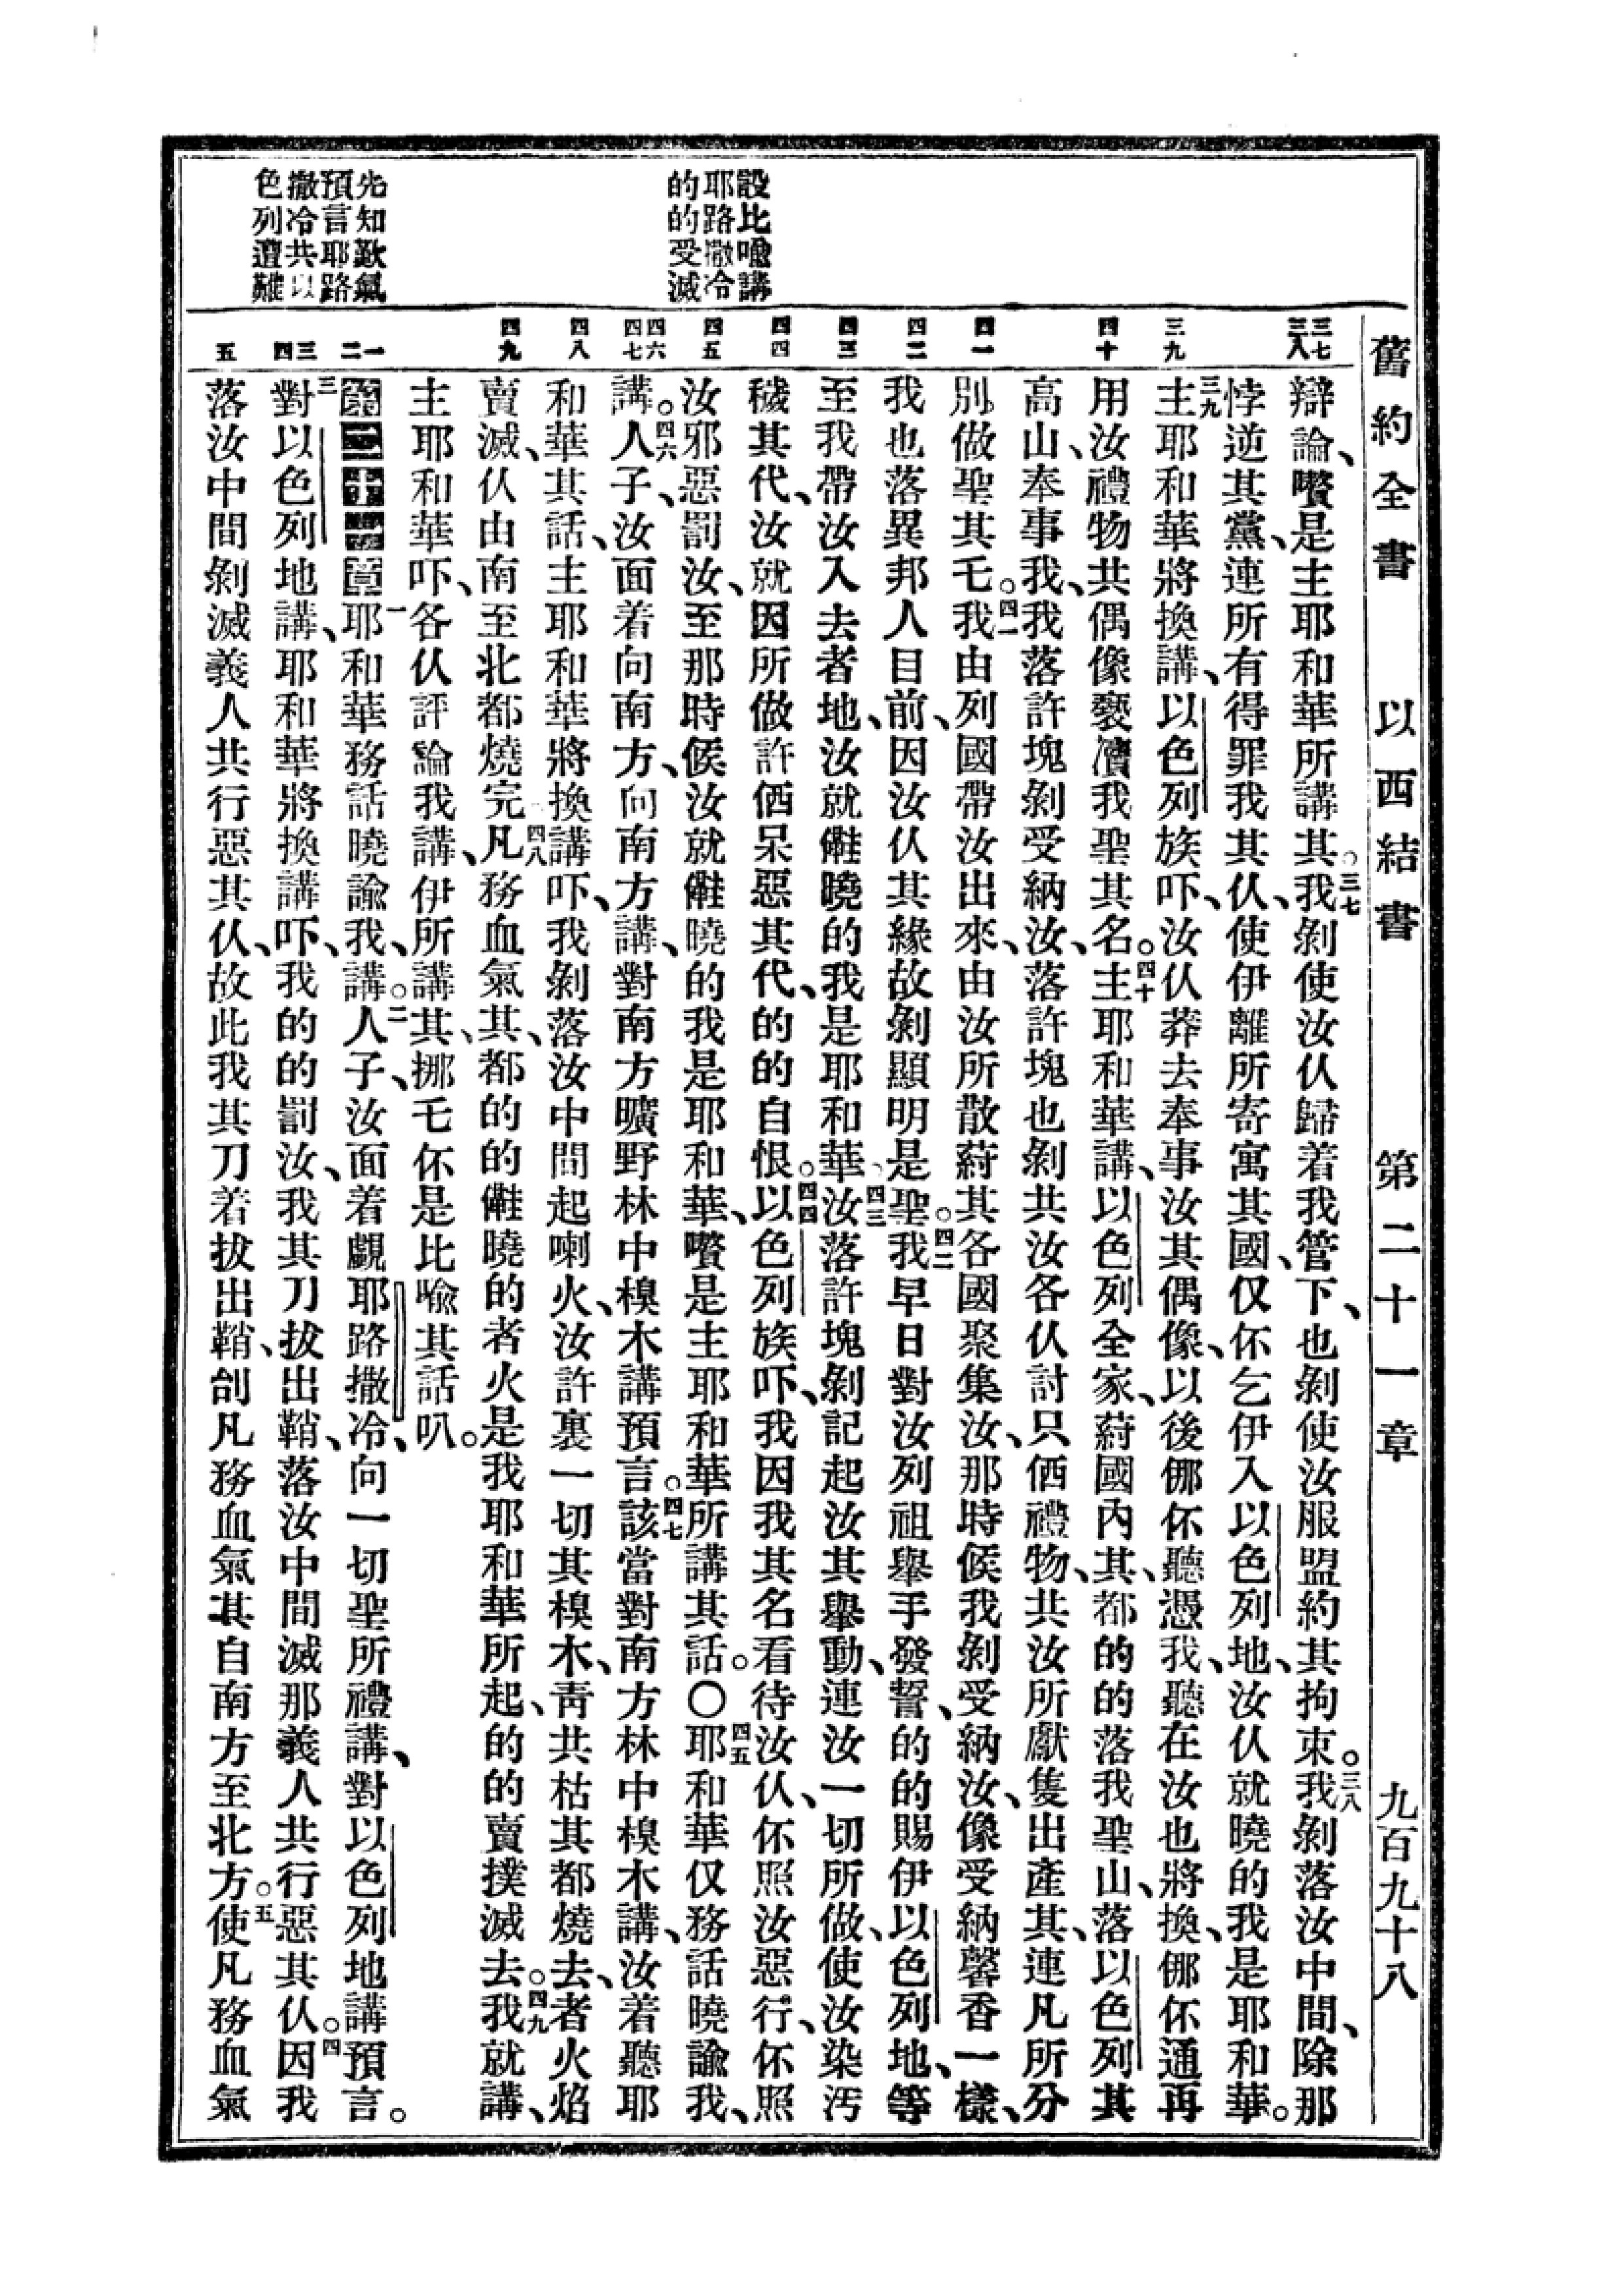 舊約全書 以西結書 第二十一章 九百九十八
設比喻講
耶路撒冷
的的受滅
先知歎氣
預言耶路
撒冷共以
色列遭難
三七 三八 三九 四十 四一 四二 四三 四四 四五 四六 四七 四八 四九 一 二 三 四 五
辯論、囋是主耶和華所講其。三七我剝使汝仈歸着我管下、也剝使汝服盟約其拘束。三八我剝落汝中間、除那
悖逆其黨、連所有得罪我其仈、使伊離所寄寓其國、仅伓乞伊入以色列地、汝仈就曉的我是耶和華。
三九主耶和華將換講、以色列族吓、汝仈莽去奉事汝其偶像、以後㑚伓聽憑我、聽在汝也將換、㑚伓通再
用汝禮物共偶像褻瀆我聖其名。四十主耶和華講、以色列全家、蒔國內其、都的的落我聖山、落以色列其
高山、奉事我、我落許塊剝受納汝、落許塊也剝共汝各仈討只𠌥禮物、共汝所獻隻出產其、連凡所分
別做聖其乇。四一我由列國帶汝出來、由汝所散蒔其各國聚集汝、那時候我剝受納汝、像受納馨香一樣、
我也落異邦人目前、因汝仈其緣故剝顯明是聖。四二我早日對汝列祖舉手發誓、的的賜伊以色列地、等
至我帶汝入去者地、汝就𠍲曉的我是耶和華、四三汝落許塊剝記起汝其舉動、連汝一切所做、使汝染汚
穢其代、汝就因所做許𠌥呆惡其代、的的自恨。四四以色列族吓、我因我其名看待汝仈、伓照汝惡行、伓照
汝邪惡罰汝、至那時候汝就𠍲曉的我是耶和華、囋是主耶和華所講其話。〇四五耶和華仅務話曉諭我、
講。四六人子、汝面着向南方、向南方講、對南方曠野林中樹木講預言。四七該當對南方林中樹木講、汝着聽耶
和華其話、主耶和華將換講吓、我剝落汝中間起喇火、汝許裏一切其樹木、靑共枯其都燒去、者火焰
賣滅、仈由南至北都燒完、四八凡務血氣其、都的的𠍲曉的者火是我耶和華所起、的的賣撲滅去。四九我就講、
主耶和華吓、各仈評論我講、伊所講其、挪乇伓是比喻其話叭。
第二十一章 一耶和華務話曉諭我、講。二人子、汝面着覷耶路撒冷、向一切聖所禮講、對以色列地講預言。
三對以色列地講、耶和華將換講吓、我的的罰汝、我其刀拔出鞘、落汝中間滅那義人共行惡其仈。四因我
落汝中間剝滅義人共行惡其仈、故此我其刀着拔出鞘、創凡務血氣其自南方至北方。五使凡務血氣